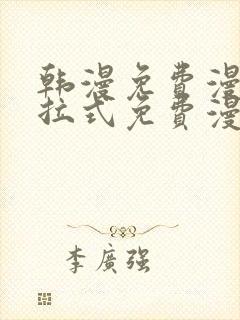 韩漫免费漫
拉式免费漫
李廣强